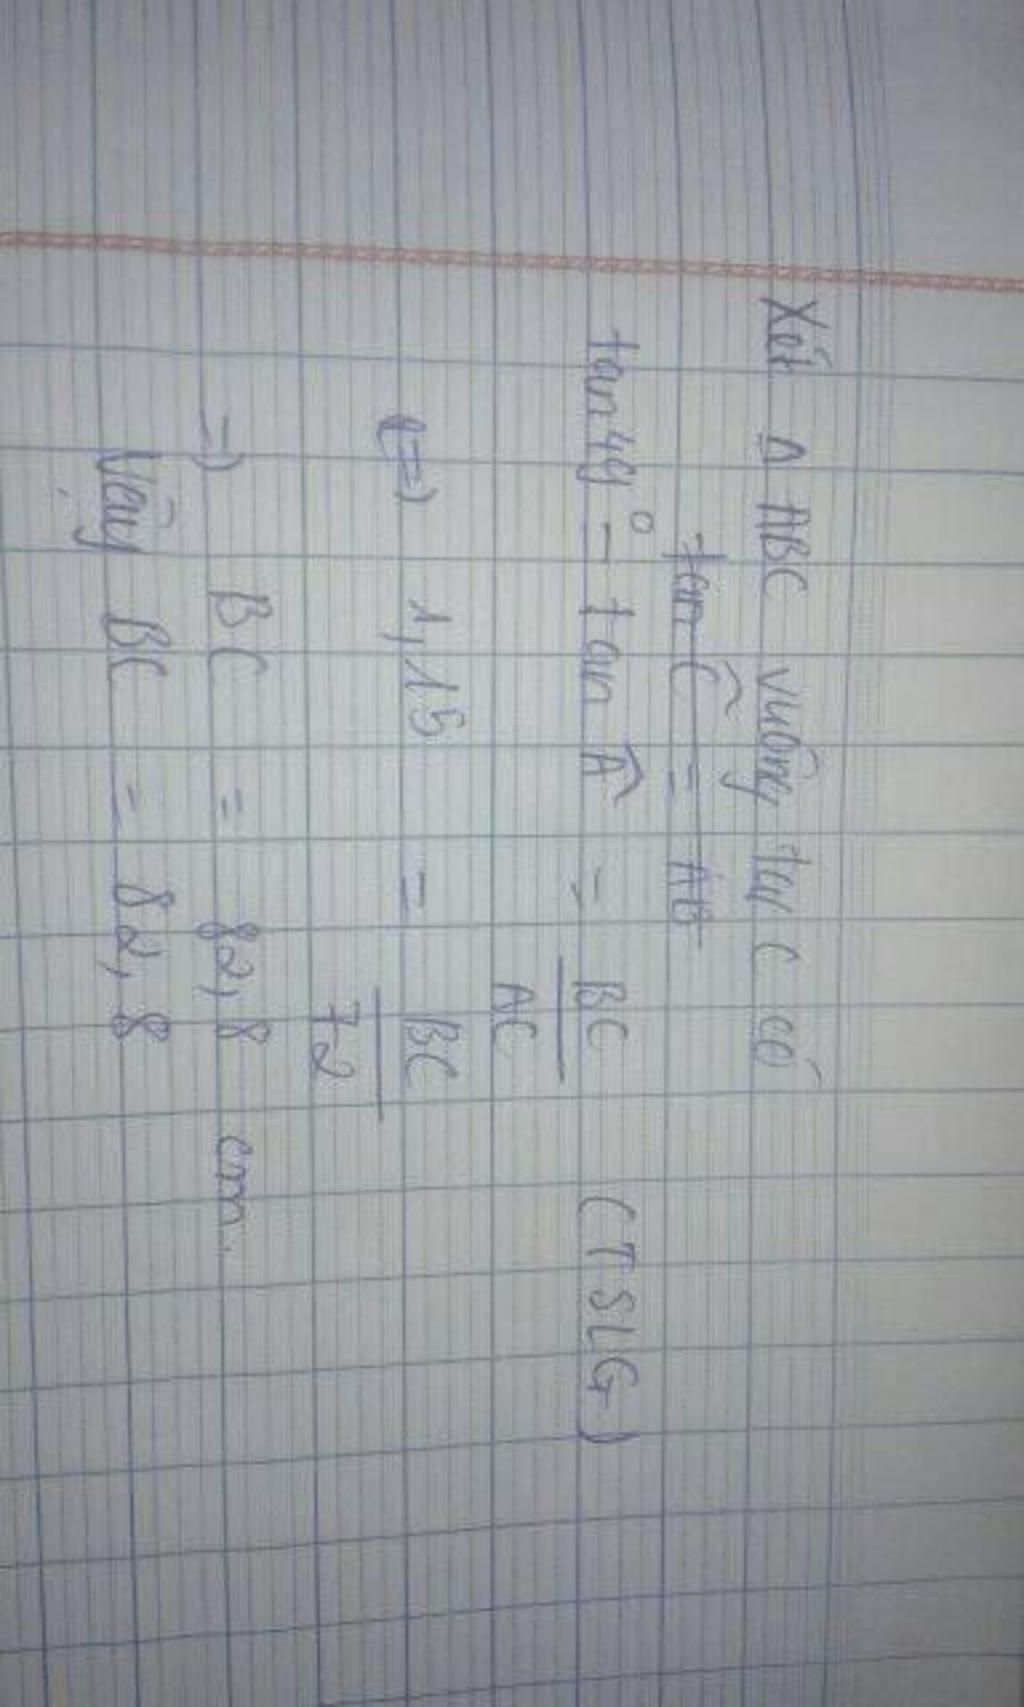 Xét Δ ABC vuông tại C có
tan Ĉ = AB
tan 49° = tan Â = BC/AC (TSLG)
(=) 1,15 = BC/72
=) BC = 82,8 cm.
Vậy BC = 82,8